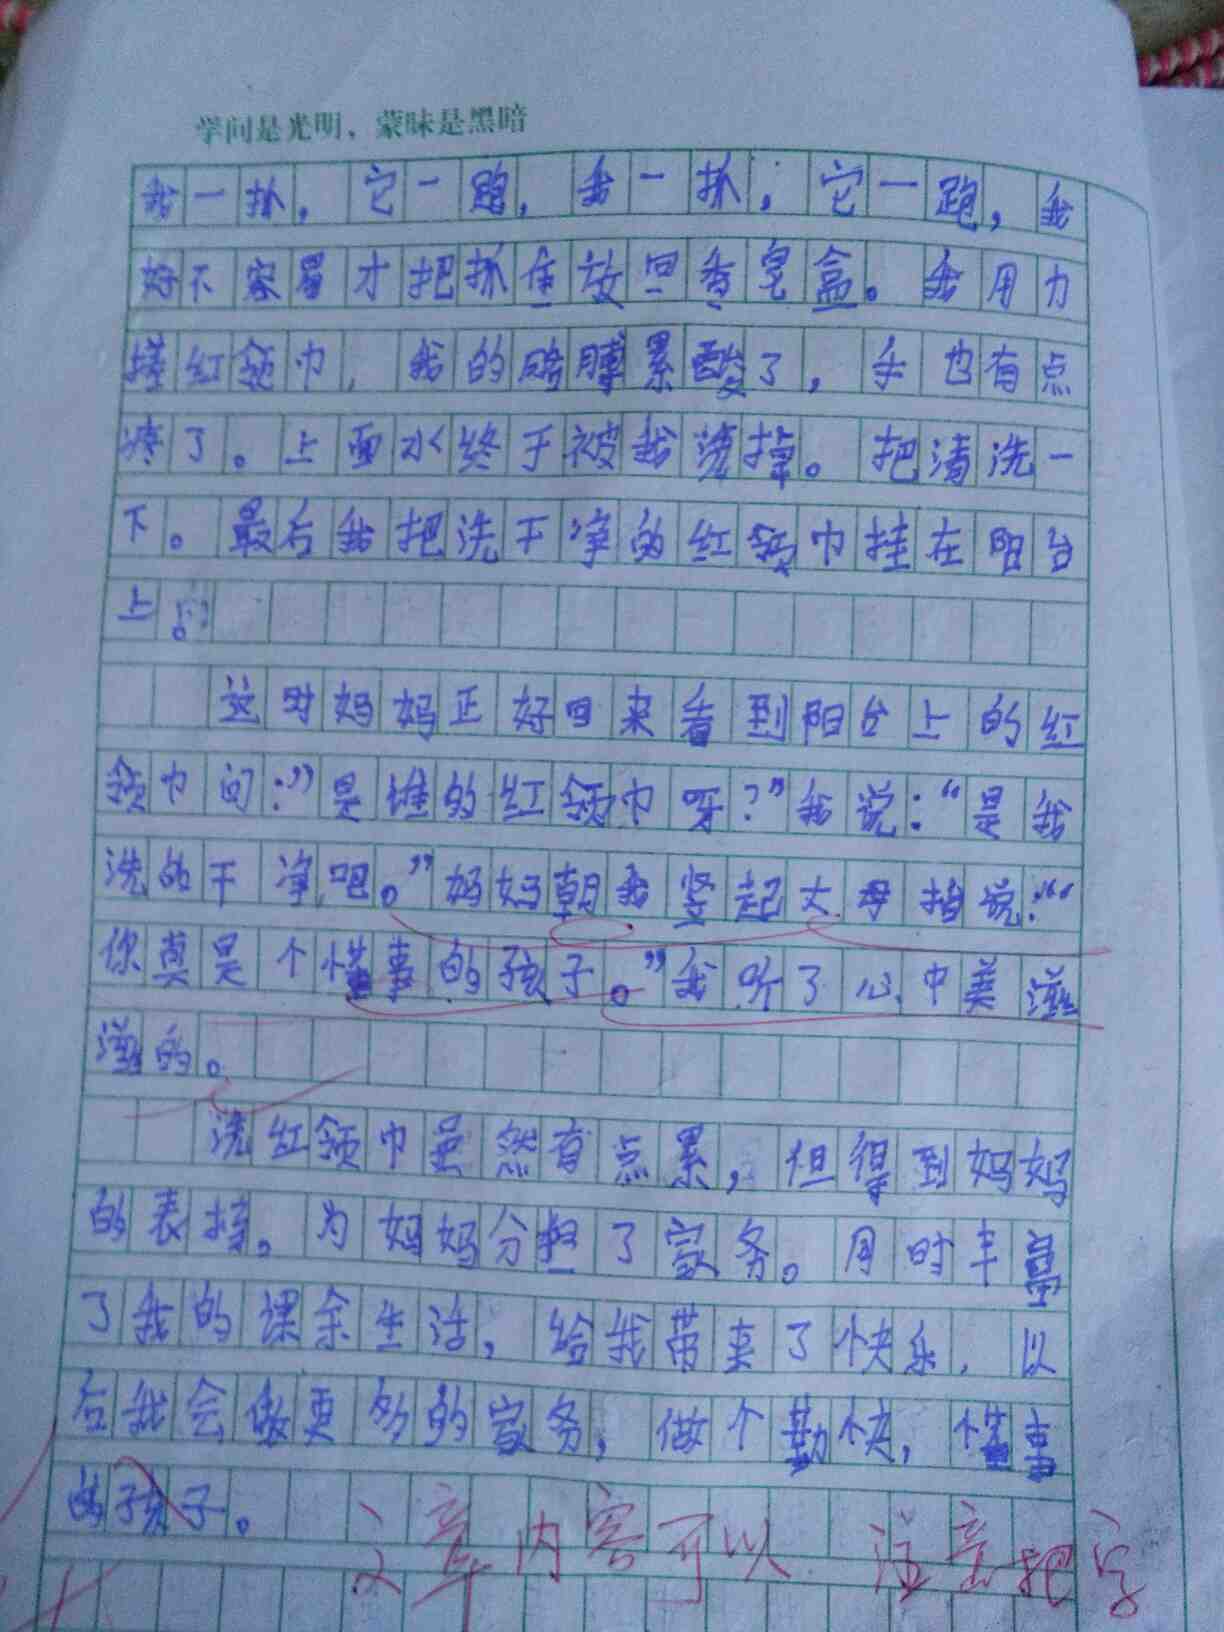 学问是光明，蒙昧是黑暗
我一抓，它一跑，我一抓，它一跑，我
好不容易才把抓住放回香皂盒。我用力
搓红领巾，我的胳膊累酸了，手也有点
疼了。上面水终于被我洗掉。把清洗一
下。最后我把洗干净的红领巾挂在阳台
上。
这时妈妈正好回来看到阳台上的红
领巾问：”是谁的红领巾呀？”我说：“是我
洗的干净吧。”妈妈朝我竖起大母指说：“
你真是个懂事的孩子。”我听了心中美滋
滋的。
洗红领巾虽然有点累，但得到妈妈
的表扬。为妈妈分担了家务。同时丰富
了我的课余生活，给我带来了快乐，以
后我会做更多的家务，做个勤快，懂事
的孩子。
文章内容可以 注意把字